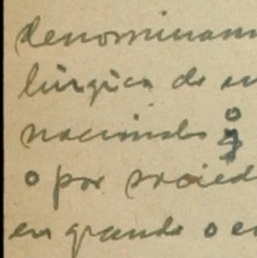 denominam
lúrgica de
nacionales o
o por socied
en grande o en